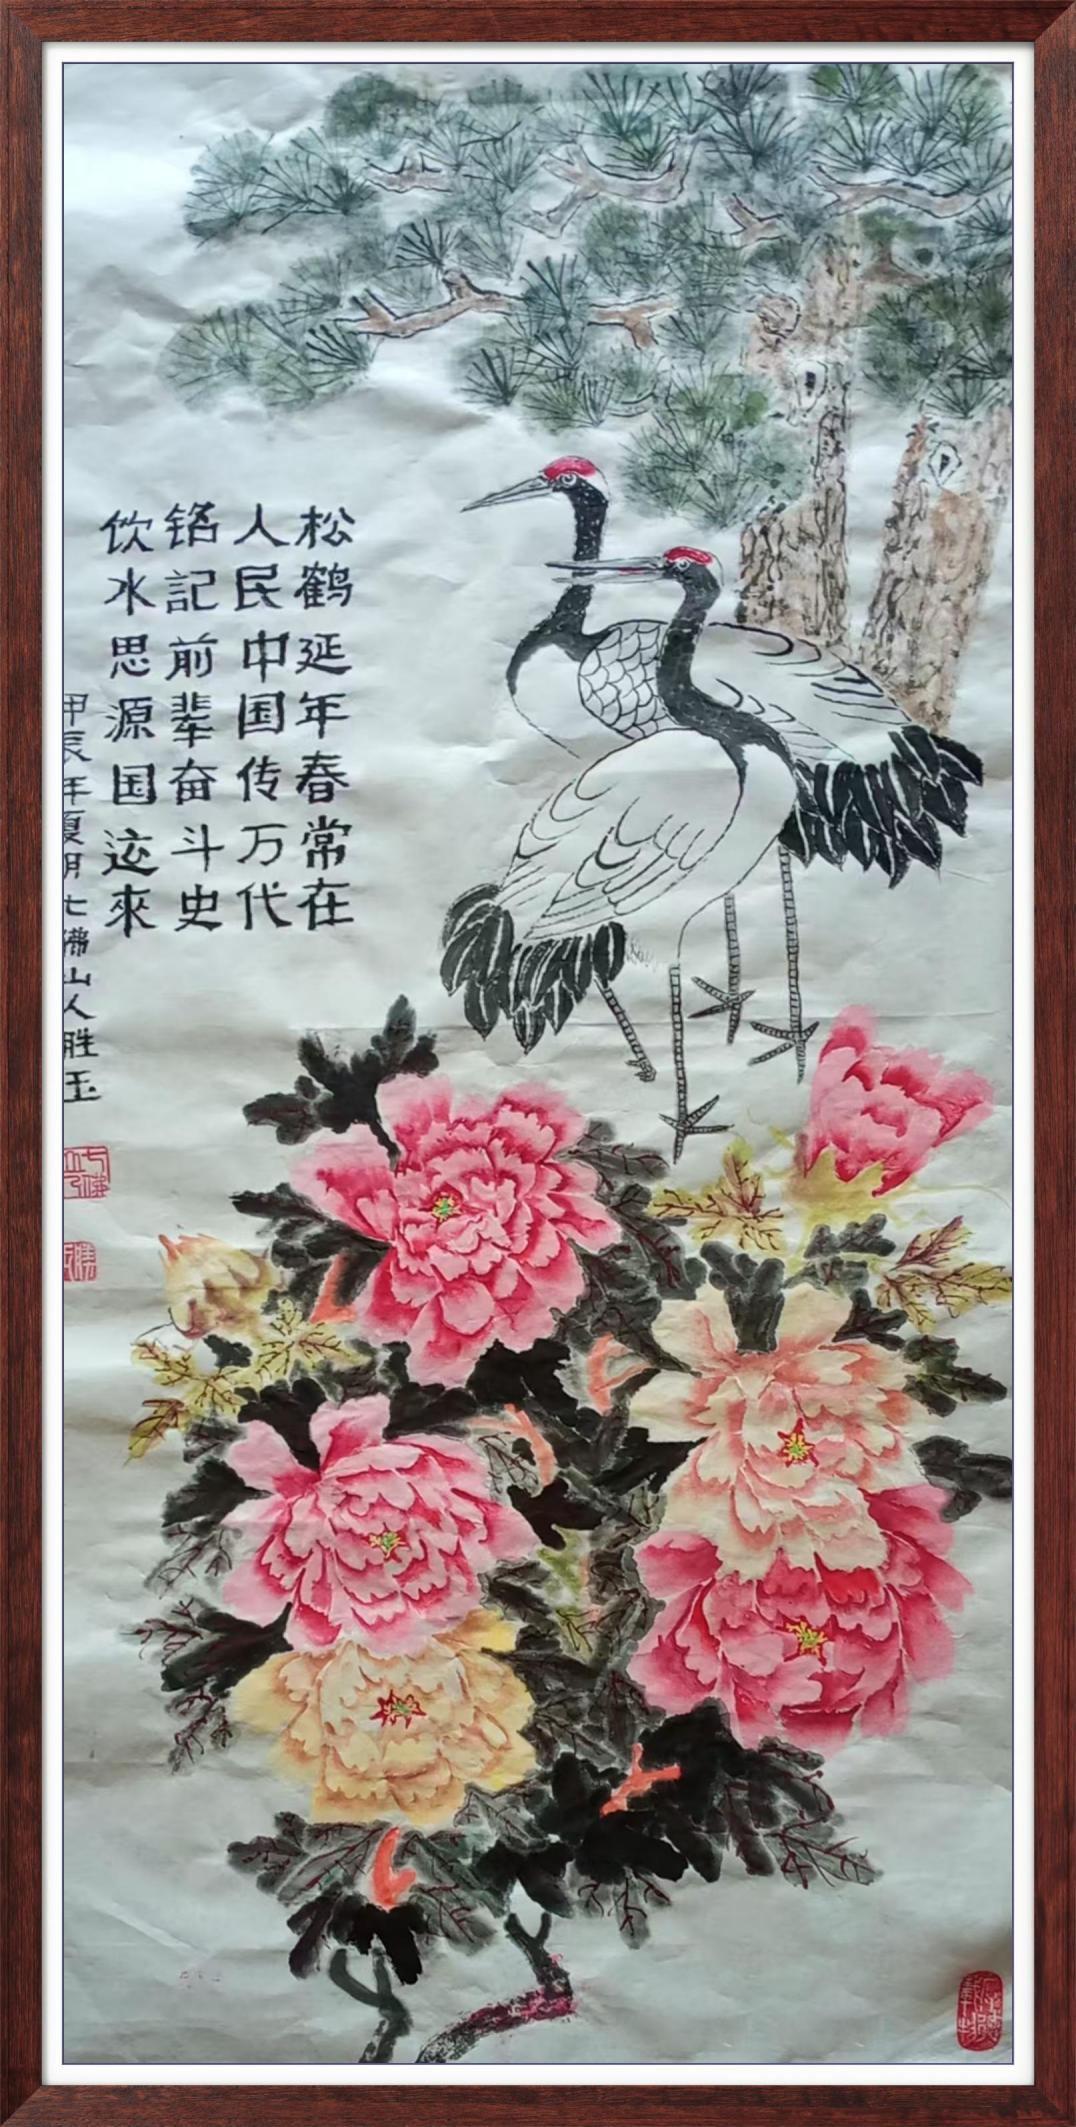 松鹤延年春常在
人民中国传万代
铭記前辈奋斗史
饮水思源国运來
甲辰年夏月七佛山人胜玉